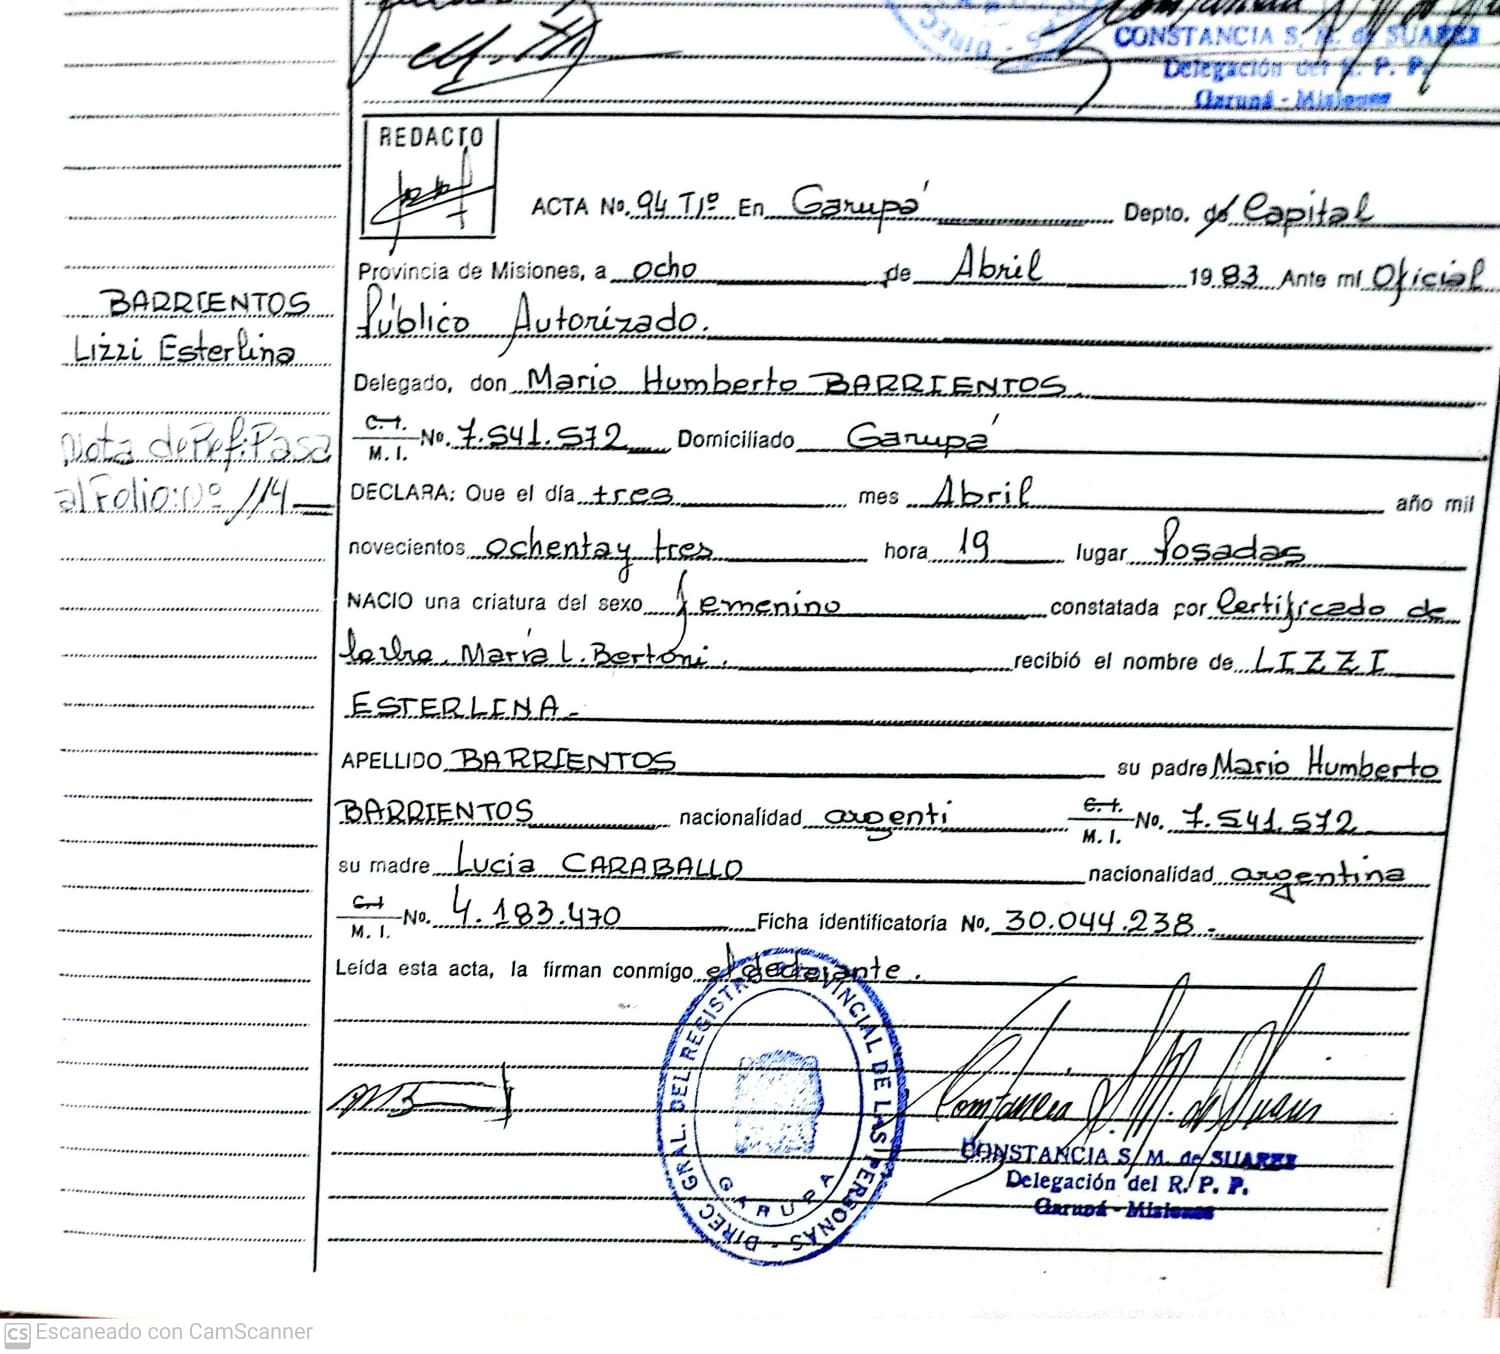 CONSTANCIA S. M. de SUAREZ
Delegación del R. P. P.
Garupá - Misiones
REDACTO
ACTA No. 94 T1º En Garupá Depto. de Capital
Provincia de Misiones, a ocho de Abril 1983 Ante mí Oficial
Público Autorizado.
BARRIENTOS
Lizzi Esterlina
Delegado, don Mario Humberto BARRIENTOS
C.I.
M. I. No. 7.541.572 Domiciliado Garupá
Nota de Ref: Pasa
al Folio: Nº 114
DECLARA: Que el día tres mes Abril año mil
novecientos ochenta y tres hora 19 lugar Posadas
NACIO una criatura del sexo femenino constatada por Certificado de
María L. Bertoni. recibió el nombre de LIZZI
ESTERLINA -
APELLIDO BARRIENTOS su padre Mario Humberto
BARRIENTOS nacionalidad argenti C.I.
M. I. No. 7.541.572
su madre Lucia CARABALLO nacionalidad argentina
C.I.
M. I. No. 4.183.470 Ficha identificatoria No. 30.044.238 -
Leída esta acta, la firman conmigo el declarante.
DIREC GRAL. DEL REGISTRO PROVINCIAL DE LAS PERSONAS -
GARUPA
Constancia S. M. de Suarez
CONSTANCIA S. M. de SUAREZ
Delegación del R. P. P.
Garupá - Misiones
CS Escaneado con CamScanner